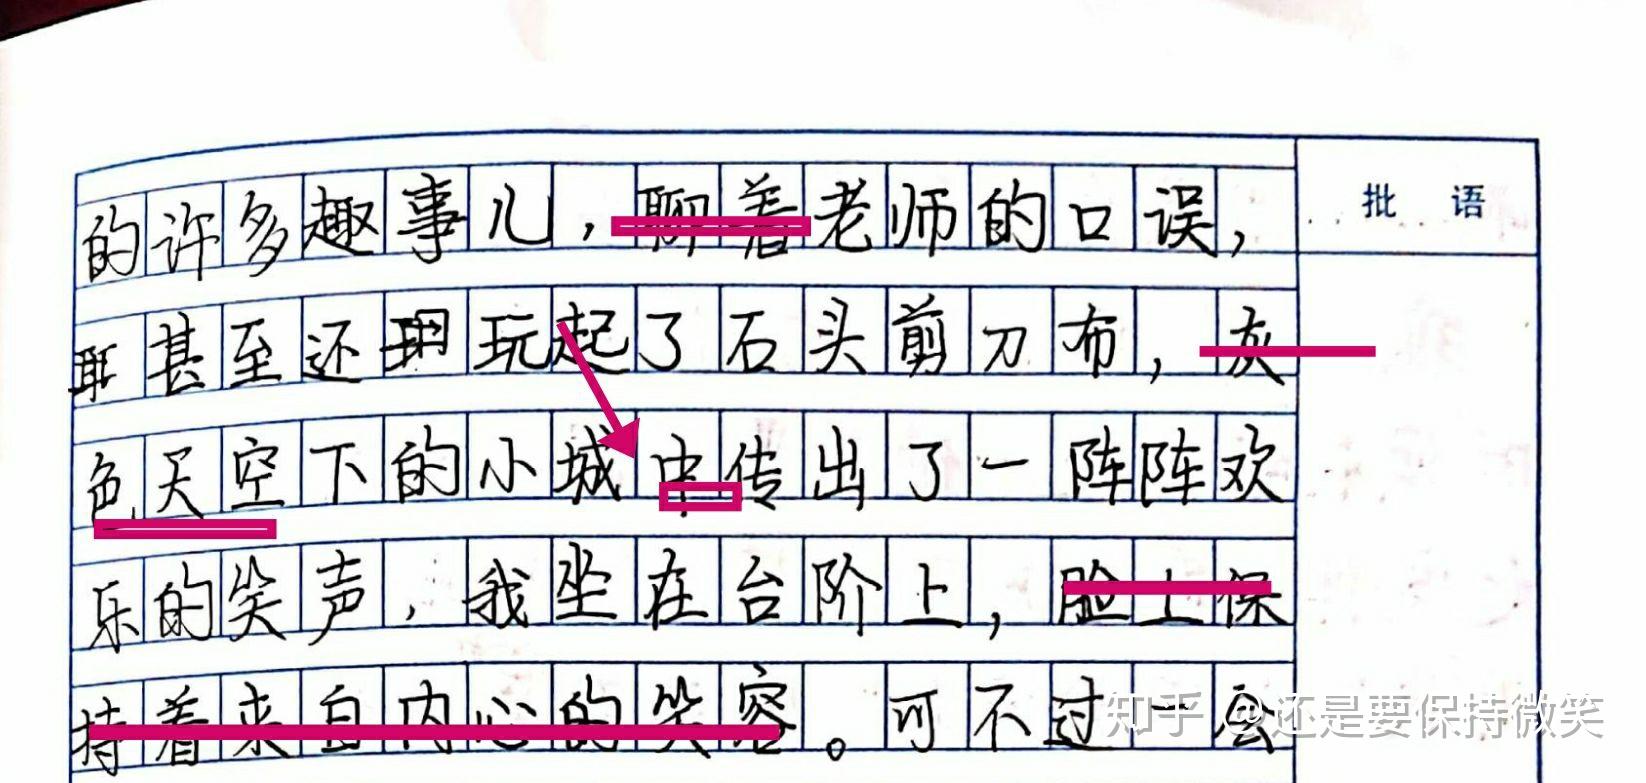 的许多趣事儿，聊着老师的口误，
批 语
甚至还玩起了石头剪刀布，灰
色天空下的小城中传出了一阵阵欢
乐的笑声，我坐在台阶上，脸上保
持着来自内心的笑容。可不过一会
知乎 @还是要保持微笑